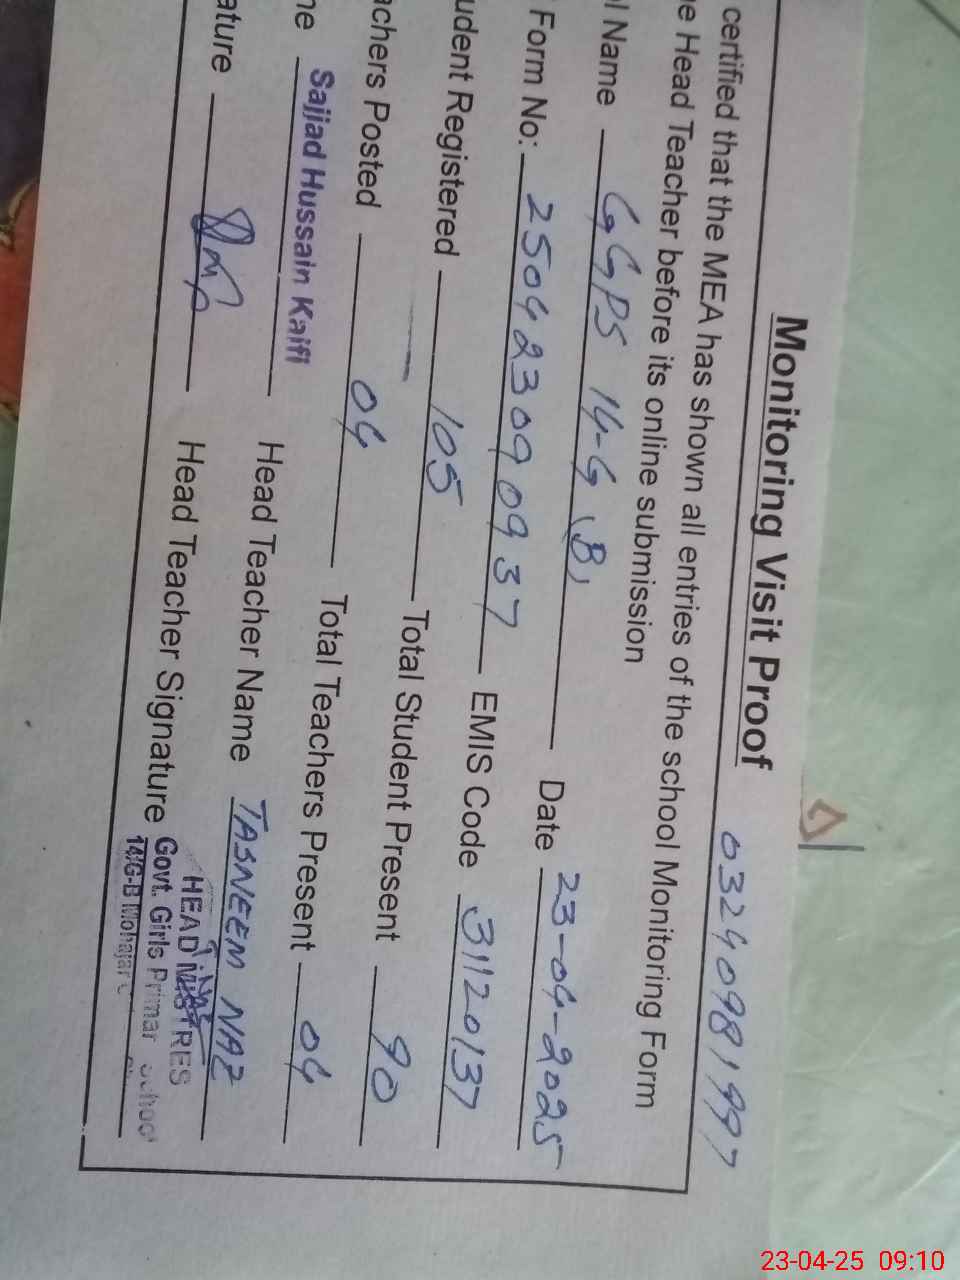 Monitoring Visit Proof
03240981997
certified that the MEA has shown all entries of the school Monitoring Form
e Head Teacher before its online submission
l Name GGPS 14-G (B) Date 23-04-2025
Form No: 250423090937 EMIS Code 31120137
udent Registered 105 Total Student Present 90
achers Posted 04 Total Teachers Present 04
me Sajjad Hussain Kaifi Head Teacher Name TASNEEM NAZ
ature Head Teacher Signature
HEAD MISTRES
Govt. Girls Primar School
14/G-B Mohajar
23-04-25 09:10